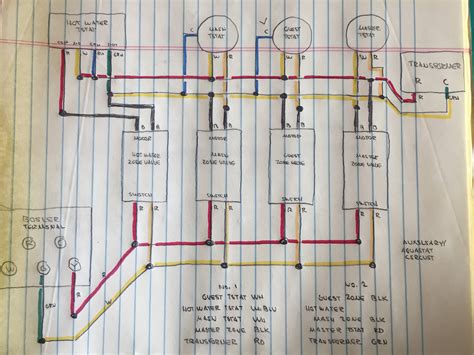 HOT WATER
TSTAT
MAIN
TSTAT
GUEST
TSTAT
MASTER
TSTAT
TRANSFORMER
R
C
GRN
C
C
R
W
R
W
R
W
R
B
B
B
B
B
B
B
B
MOTOR
HOT WATER
ZONE VALVE
SWITCH
MOTOR
MAIN
ZONE VALVE
SWITCH
MOTOR
GUEST
ZONE VALVE
SWITCH
MOTOR
MASTER
ZONE VALVE
SWITCH
R
R
R
R
R
R
R
R
BOILER
TERMINAL
B
C
W
G
Y
GRN
R
AUXILIARY/
AQUASTAT
CIRCUIT
NO. 1
GUEST TSTAT WH
HOT WATER TSTAT WH/BLU
MAIN TSTAT WH
MASTER ZONE RD
TRANSFORMER RD
NO. 2
GUEST ZONE BLK
HOT WATER BLK
MAIN ZONE BLK
MASTER TSTAT RD
TRANSFORMER GRN